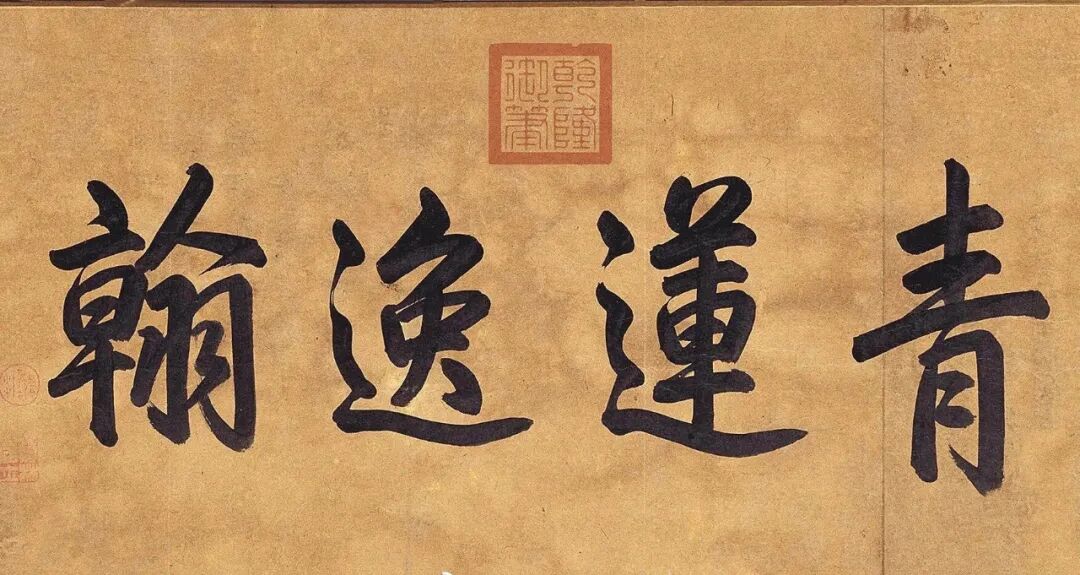 乾隆
御筆
青蓮逸翰